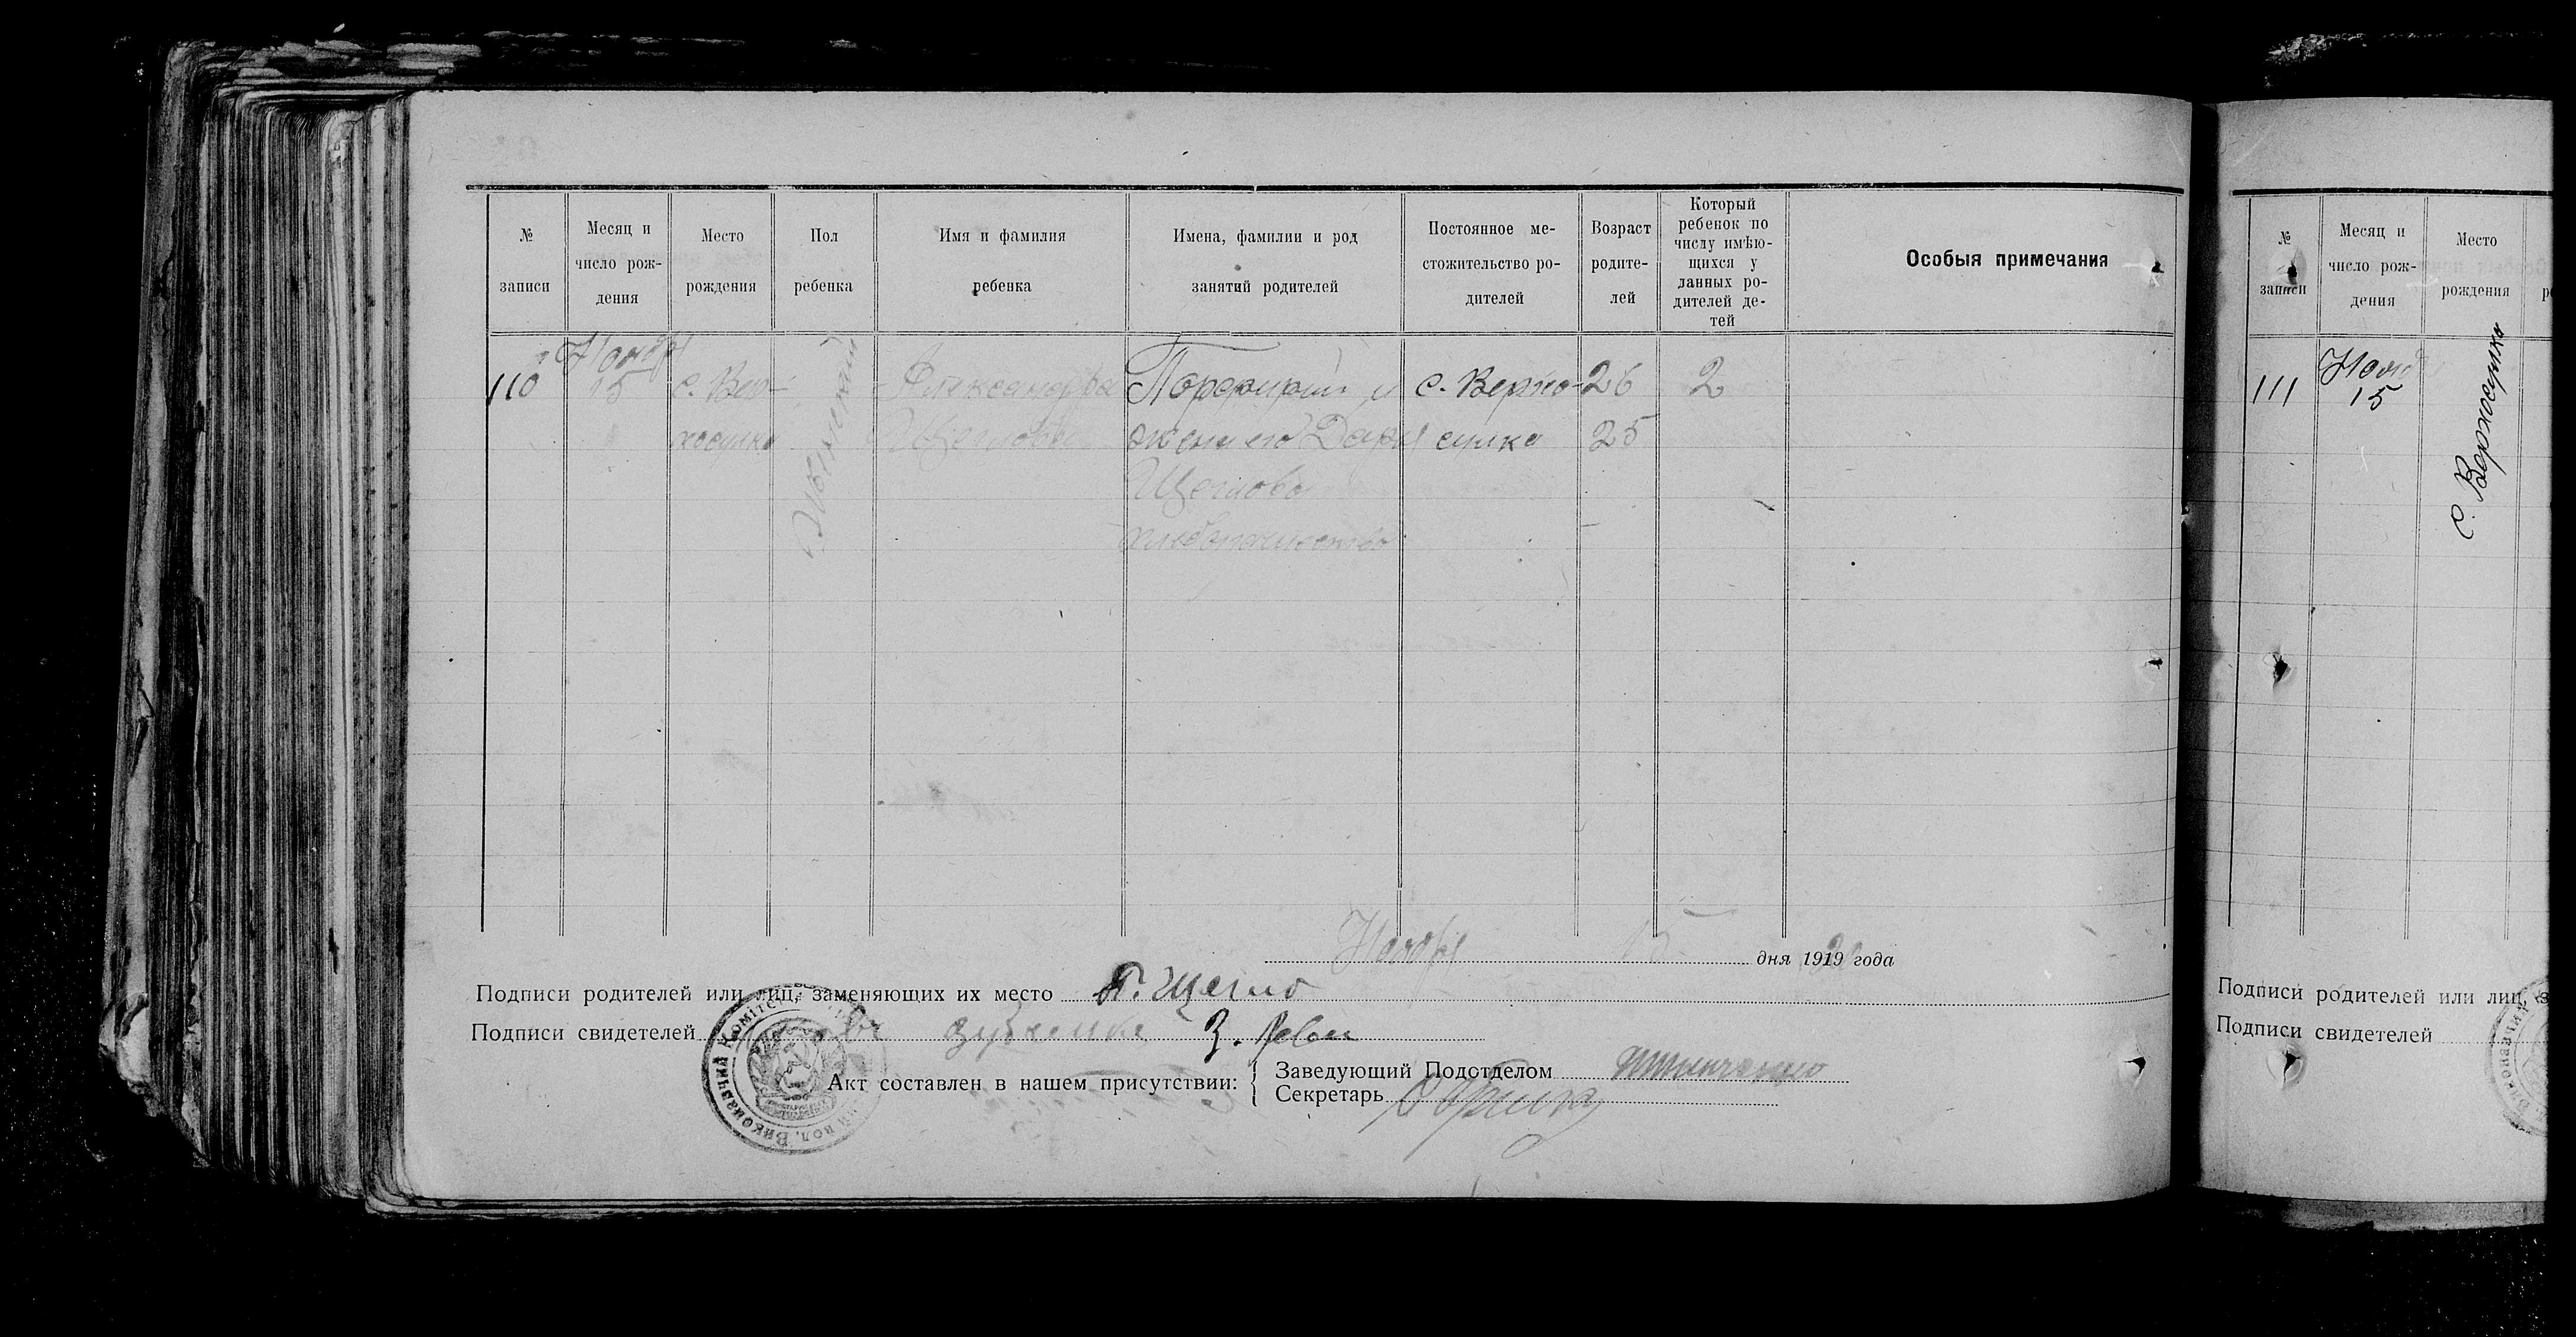 № записи
Месяц и число рож-дения
Место рождения
Пол ребенка
Имя и фамилия ребенка
Имена, фамилии и род занятий родителей
Постоянное ме-стожительство ро-дителей
Возраст родите-лей
Который ребенок по числу имѣю-щихся у данных ро-дителей де-тей
Особыя примечания
110
Ноября
15
с. Вер-
хосулка
Женский
Александра
Щеглова
Порфирий и
жена его Дарья
Щеглова
хлебопашество
с. Верхо-
сулка
26
25
2
Ноября 15 дня 1919 года
Подписи родителей или лиц, заменяющих их место П. Щегло
Подписи свидетелей
Акт составлен в нашем присутствии:
Заведующий Подотделом
Секретарь
№ записи
Месяц и число рож-дения
Место рождения
111
Нояб
15
с. Верхосулка
Подписи родителей или лиц, з
Подписи свидетелей